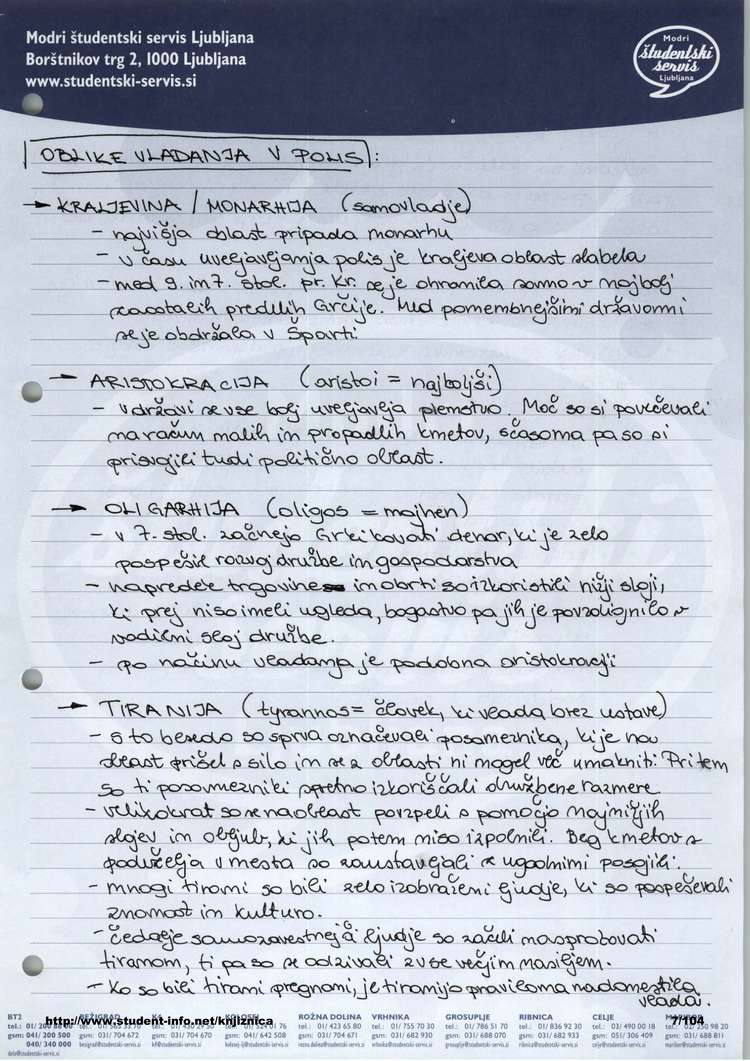 Modri študentski servis Ljubljana
Borštnikov trg 2, 1000 Ljubljana
www.studentski-servis.si
Modri
študentski
servis
Ljubljana
OBLIKE VLADANJA V POLIS:
→ KRALJEVINA / MONARHIJA (samovladje)
- najvišja oblast pripada monarhu
- v času uveljavljanja polis je kraljeva oblast slabela
- med 9. in 7. stol. pr. Kr. se je ohranila samo v najbolj
zaostalih predelih Grčije. Med pomembnejšimi državami
se je obdržala v Šparti.
→ ARISTOKRACIJA (aristoi = najboljši)
- v državi se vse bolj uveljavlja plemstvo. Moč so si povečevali
na račun malih in propadlih kmetov, sčasoma pa so si
prisvojili tudi politično oblast.
→ OLIGARHIJA (oligos = majhen)
- v 7. stol. začnejo Grki kovati denar, ki je zelo
pospešil razvoj družbe in gospodarstva
- napredek trgovine in obrti so izkoristili nižji sloji,
ki prej niso imeli ugleda, bogastvo pa jih je povzdignilo v
vodilni sloj družbe.
- po načinu vladanja je podobna aristokraciji
→ TIRANIJA (tyrannos = človek, ki vlada brez ustave)
- s to besedo so sprva označevali posameznika, ki je na
oblast prišel s silo in se z oblasti ni mogel več umakniti. Pri tem
so ti posamezniki spretno izkoriščali družbene razmere.
- velikokrat so se na oblast povzpeli s pomočjo najnižjih
slojev in obljub, ki jih potem niso izpolnili. Beg kmetov s
podeželja v mesta so zaustavljali z ugodnimi posojili.
- mnogi tirani so bili zelo izobraženi ljudje, ki so pospeševali
znanost in kulturo.
- čedalje samozavestnejši ljudje so začeli nasprotovati
tiranom, ti pa so se odzivali z vse večjim nasiljem.
- ko so bili tirani pregnani, je tiranijo praviloma nadomestila
vlada.
http://www.student-info.net/knjiznica
7/104
BT2 BEŽIGRAD ROŽNA DOLINA VRHNIKA GROSUPLJE RIBNICA CELJE
tel.: 01/ 423 65 80 tel.: 01/ 755 70 30 tel.: 01/ 786 51 70 tel.: 01/ 836 92 30 tel.: 03/ 490 00 18
gsm: 041/ 200 500 gsm: 031/ 704 672 gsm: 031/ 704 670 gsm: 041/ 642 508 gsm: 031/ 704 671 gsm: 031/ 682 930 gsm: 031/ 688 070 gsm: 031/ 682 933 gsm: 051/ 306 409 gsm: 031/ 688 811
040/ 340 000